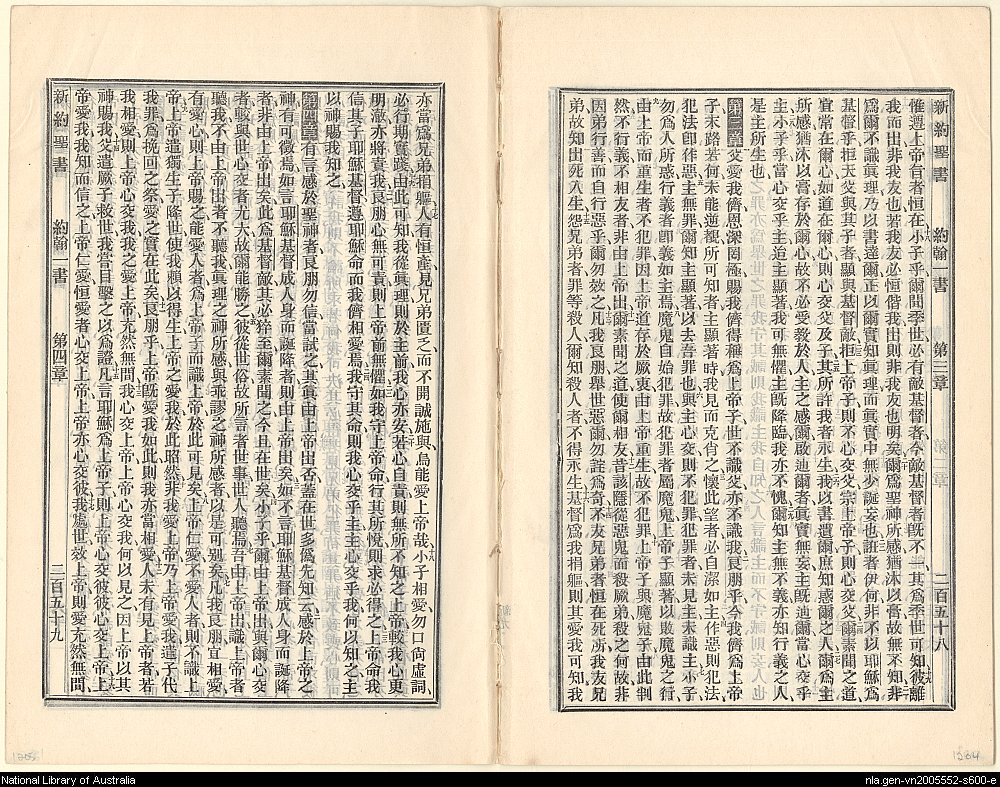 新約聖書 約翰一書 第三章 二百五十八
惟遵上帝旨者恒在小子乎爾聞季世必有敵基督者今敵基督者旣不一其爲季世可知彼離
我而出非我友也若我友必恒偕我出則非我友也明矣爾爲聖神所感猶沐以膏故無不知非
爲爾不識眞理乃以書達爾正以爾實知眞理而眞實中無少誕妄也誑者伊何非不以耶穌爲
基督乎拒天父與其子者顯與基督敵拒上帝子則不心交父宗上帝子則心交父爾素聞之道
宜常在爾心如道在爾心則心交父及子其所許我者永生我以書遺爾庶知惑爾之人爾爲主
所感猶沐以膏存於爾心故不必受敎於人主之感爾啟迪爾者眞實無妄主旣迪爾當心交乎
主小子乎當心交乎主迨主顯著我可無懼主旣降臨我亦不愧爾知主無不義亦知行義之人
是主所生也
第三章父愛我儕恩深罔極賜我儕得稱爲上帝子世不識父亦不識我良朋乎今我儕爲上帝
子末路若何未能逆覩所可知者主顯著時我見而克肖之懷此望者必自潔如主作惡則犯法
犯法卽作惡主無罪爾知主顯著以去吾罪也與主心交則不犯罪犯罪者未見主未識主小子
勿爲人所惑行義者卽義如主焉魔鬼自始犯罪故犯罪者屬魔鬼上帝子顯著以敗魔鬼之行
由上帝而重生者不犯罪因上帝之道存於厥衷由上帝重生故不犯罪上帝子與魔鬼子由此制
然不行義不相友者非由上帝出爾素聞之道使爾相友昔該隱從惡鬼而殺厥弟殺之何故非
因弟行善而自行惡乎爾勿效之凡我良朋舉世惡爾勿詫爲奇不友兄弟者恒在死所我友兄
弟故知出死入生怨兄弟者罪等殺人爾知殺人者不得永生基督爲我捐軀則其愛可知我
亦當爲兄弟捐軀人有恒產見兄弟匱乏而不開誠施與烏能愛上帝哉小子相愛勿口尙虛詞
必行期實踐由此可知我從眞理則於主前我心亦安若心自責則無所不知之上帝較我心更
明澈亦將責我良朋心無可責則上帝前無懼如我守上帝命行其所悅則求必得之上帝命我
信其子耶穌基督遵耶穌命而我儕相愛焉我守其命則我心交乎主主心交乎我何以知之主
以神賜我知之
第四章有言感於聖神者良朋勿信當試之其眞由上帝出否蓋在世多僞先知云感於上帝之
神有可徵焉如言耶穌基督成人身而誕降者則由上帝出矣如不言耶穌基督成人身而誕降
者非由上帝出矣此爲基督敵其必猝至爾素聞之今且在世矣小子乎爾由上帝出與爾心交
者較與世心交者尤大故爾能勝之彼從世俗故所言者世事世人聽焉吾由上帝出識上帝者
聽我不由上帝出者不聽我眞理之神所感與乖謬之神所感者以是可别矣凡我良朋宜相愛
有愛心則上帝賜之能愛人者爲上帝子而識上帝於此可見矣上帝仁愛不愛人者則不識上
帝上帝遣獨生子降世使我賴以得生上帝之愛我於此昭然非我愛上帝乃上帝愛我遣子代
我罪爲挽回之祭愛之實在此矣良朋乎上帝旣愛我如此則我亦當相愛人未有見上帝者若
我相愛則上帝心交我我之愛上帝充然無間我心交上帝上帝心交我何以見之因上帝以其
神賜我父遣厥子救世我嘗目擊之以爲證凡言耶穌爲上帝子則上帝心交彼彼心交上帝上
帝愛我我知而信之上帝仁愛恒愛者心交上帝上帝亦心交彼我處世效上帝則愛充然無間
新約聖書 約翰一書 第四章 二百五十九
1205
1204
National Library of Australia
nla.gen-vn2005552-s600-e